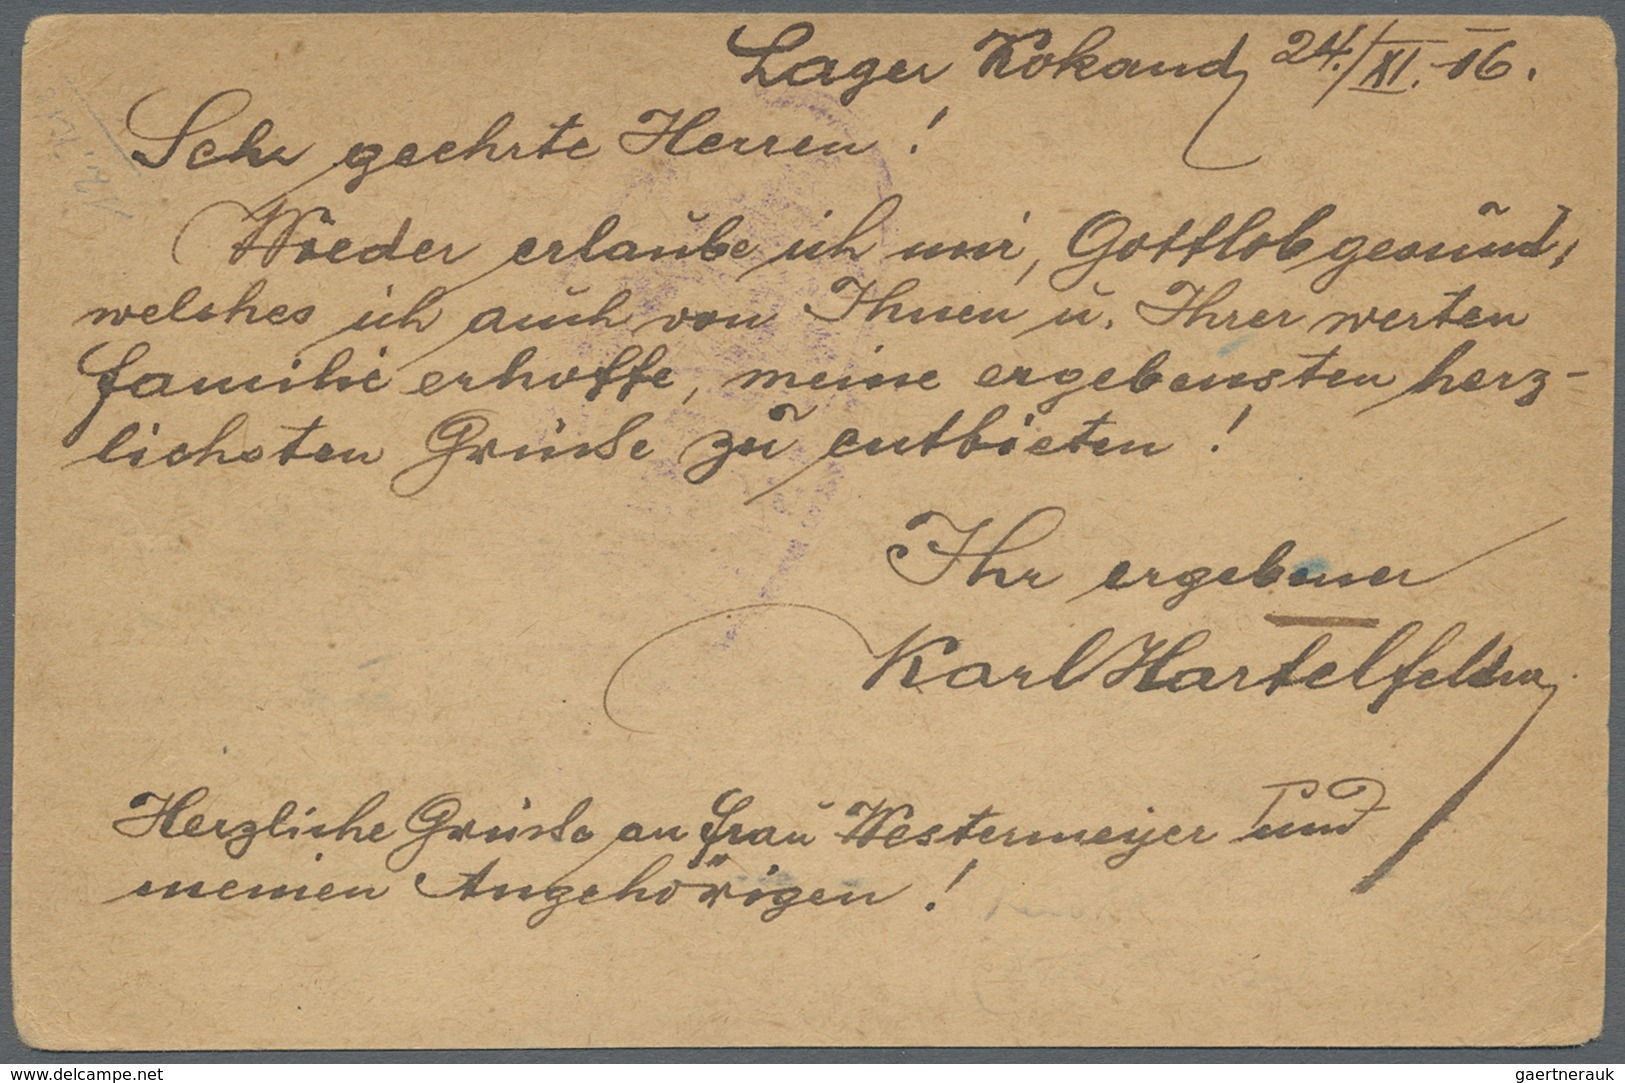 Lager Kokand, 24./XI.-16.
Sehr geehrte Herren!
Wieder erlaube ich mir, Gottlob gesund,
welches ich auch von Ihnen u. Ihrer werten
Familie erhoffe, meine ergebensten herz-
lichsten Grüße zu entbieten!
Ihr ergebener
Karl Hartelfelder
Herzliche Grüße an Frau Westermeyer und
meinen Angehörigen!
www.delcampe.net
gaertnerauk